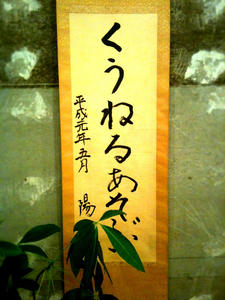 くうねるあそぶ
平成元年五月
陽